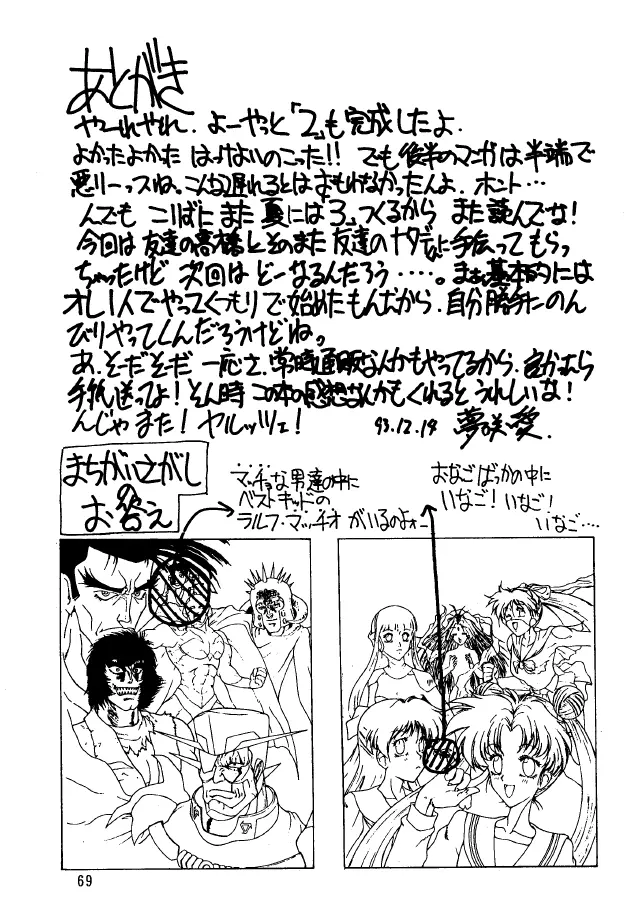 あとがき
やーれやれ．よーやっと「2」も完成したよ．
よかったよかった はっけよいのこった!! でも後半のマンガは半端で
悪りーっスね。こんな遅れるとはおもわなかったんよ．ホント…
んでも こりずに また 夏には 3、つくるから また読んでな!
今回は 友達の高橋と そのまた 友達の 手伝って もらっ
ちゃったけど 次回は どーなるんだろう ‥‥．まぁ基本的には
オレ1人でやってくつもりで始めたもんだから．自分勝手にのん
びりやってくんだろうけどね。
あ、そーだそーだ 一応さ、常時通販なんかもやってるから．
手紙送ってよ! そん時 この本の感想なんかもくれると うれしいな!
んじゃ また! ヤルッツェ! 93.12.19 夢咲 愛．
まちがいさがし
の
お答え
マッチョな男達の中に
ベストキッドの
ラルフ・マッチオ がいるのよォー
おなごばっかの中に
いなご! いなご!
いなご‥‥
69